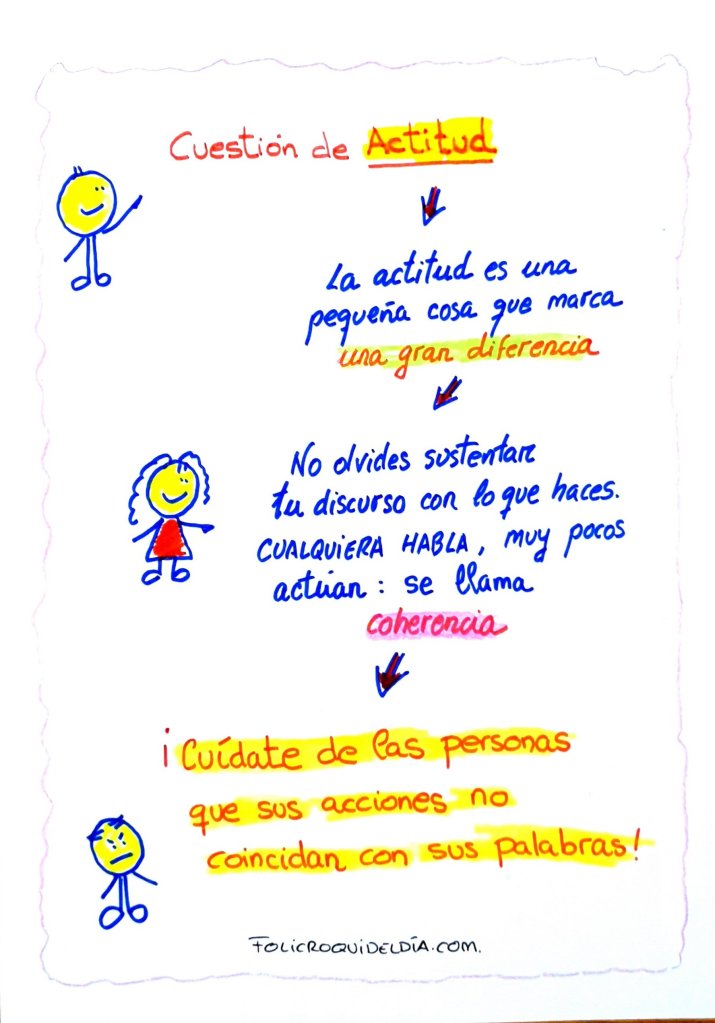 Cuestión de Actitud
La actitud es una
pequeña cosa que marca
una gran diferencia
No olvides sustentar
tu discurso con lo que haces.
CUALQUIERA HABLA, muy pocos
actúan: se llama
coherencia
¡Cuídate de las personas
que sus acciones no
coincidan con sus palabras!
FOLICROQUIDELDÍA.COM.